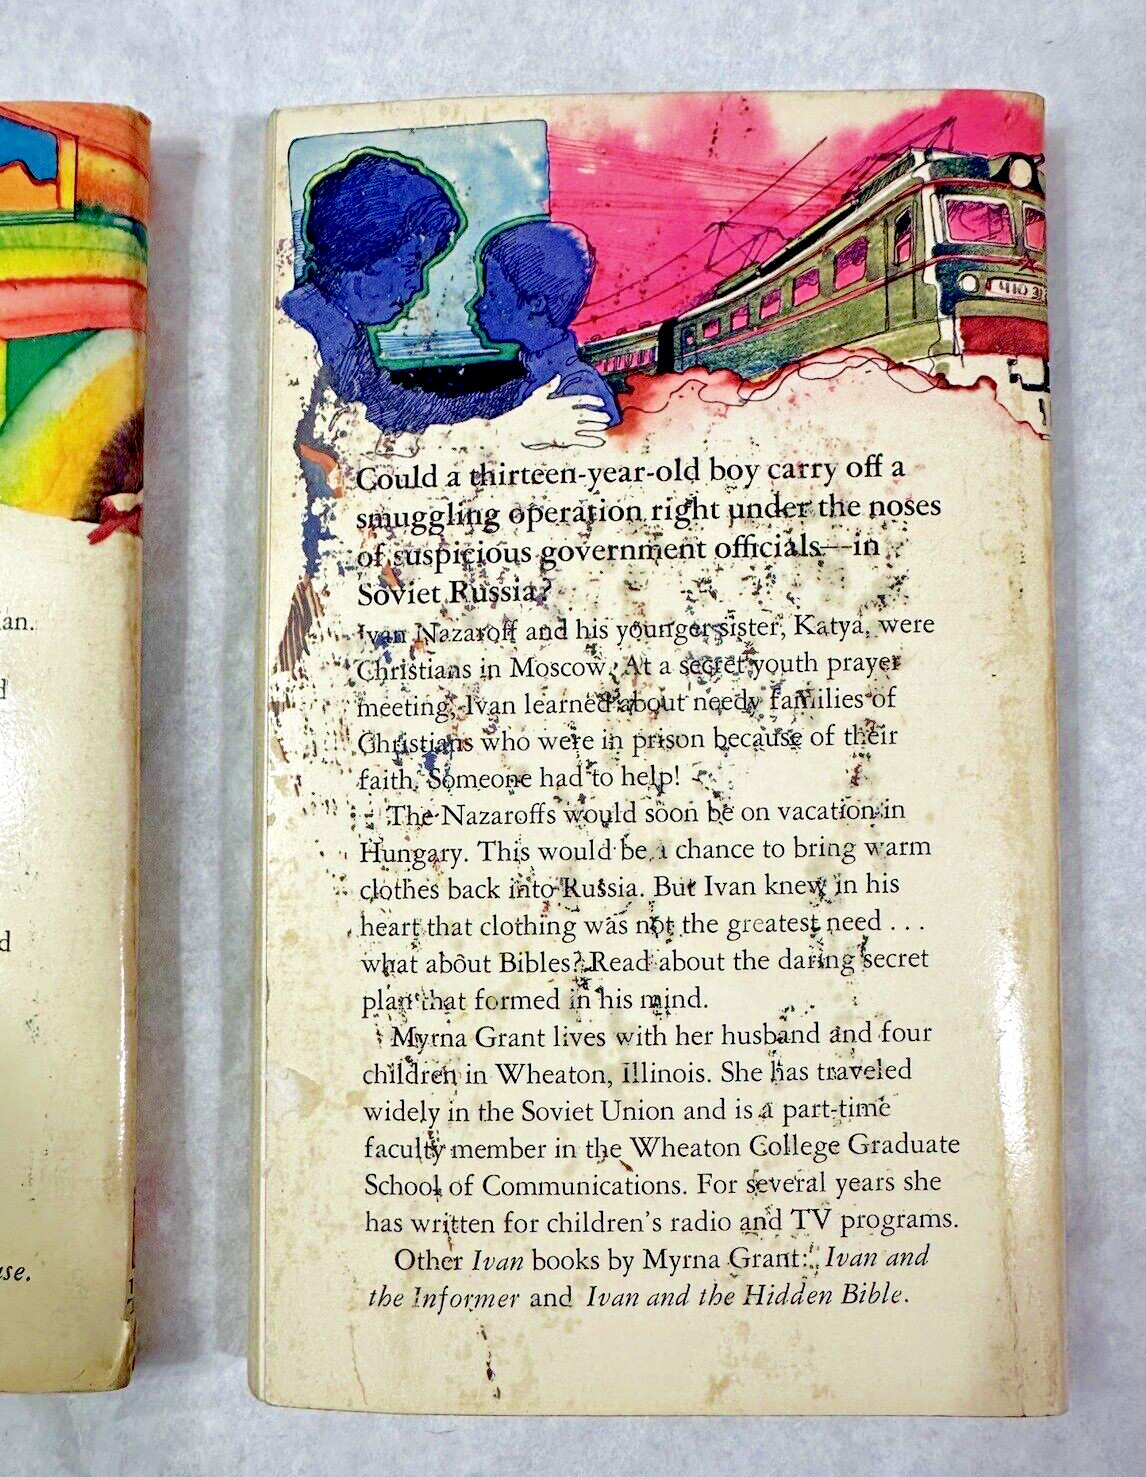 an.
d
d
use.
Could a thirteen-year-old boy carry off a
smuggling operation right under the noses
of suspicious government officials—in
Soviet Russia?
Ivan Nazaroff and his younger sister, Katya, were
Christians in Moscow. At a secret youth prayer
meeting, Ivan learned about needy families of
Christians who were in prison because of their
faith. Someone had to help!
The Nazaroffs would soon be on vacation in
Hungary. This would be a chance to bring warm
clothes back into Russia. But Ivan knew in his
heart that clothing was not the greatest need . . .
what about Bibles? Read about the daring secret
plan that formed in his mind.
Myrna Grant lives with her husband and four
children in Wheaton, Illinois. She has traveled
widely in the Soviet Union and is a part-time
faculty member in the Wheaton College Graduate
School of Communications. For several years she
has written for children's radio and TV programs.
Other Ivan books by Myrna Grant: Ivan and
the Informer and Ivan and the Hidden Bible.